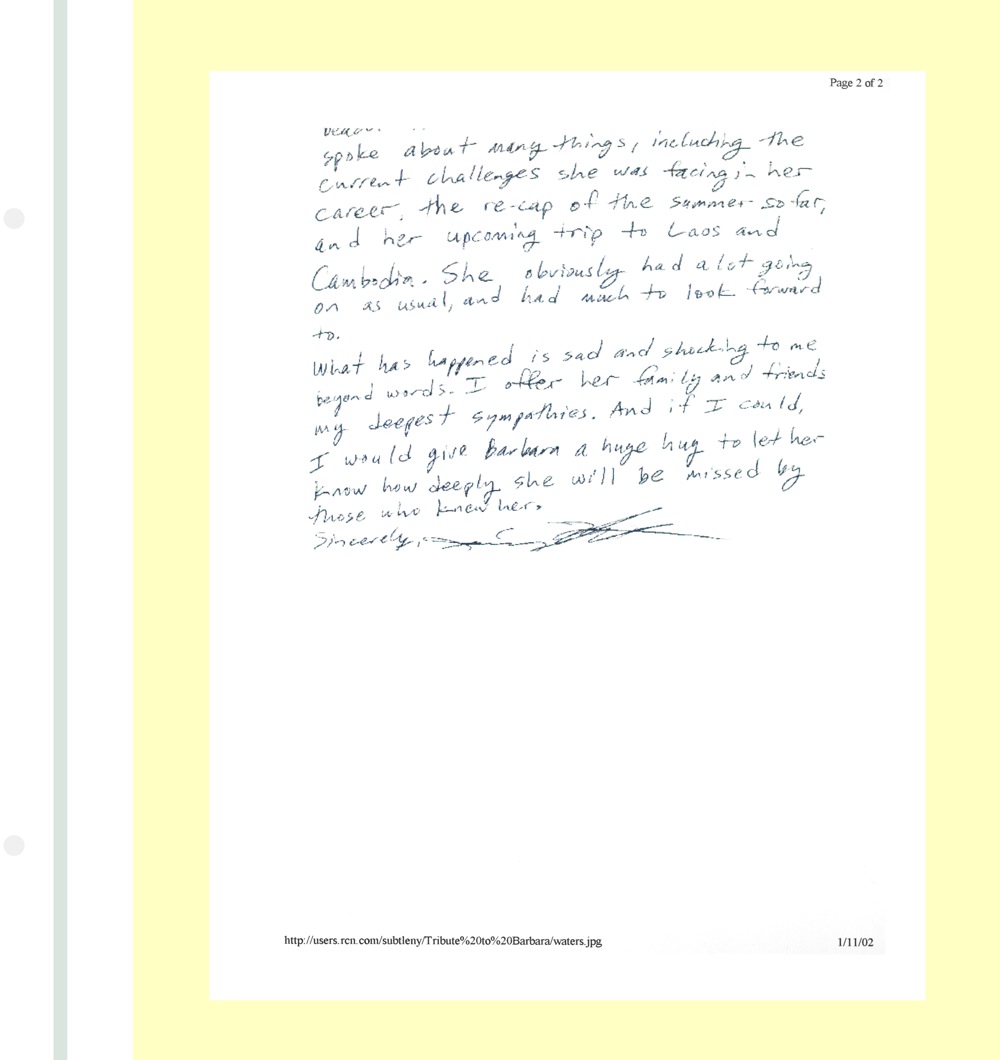 Page 2 of 2
spoke about many things, including the
current challenges she was facing in her
career, the re-cap of the summer so far,
and her upcoming trip to Laos and
Cambodia. She obviously had a lot going
on as usual, and had much to look forward
to.
What has happened is sad and shocking to me
beyond words. I offer her family and friends
my deepest sympathies. And if I could,
I would give Barbara a huge hug to let her
know how deeply she will be missed by
those who knew her.
Sincerely,
http://users.rcn.com/subtleny/Tribute%20to%20Barbara/waters.jpg
1/11/02